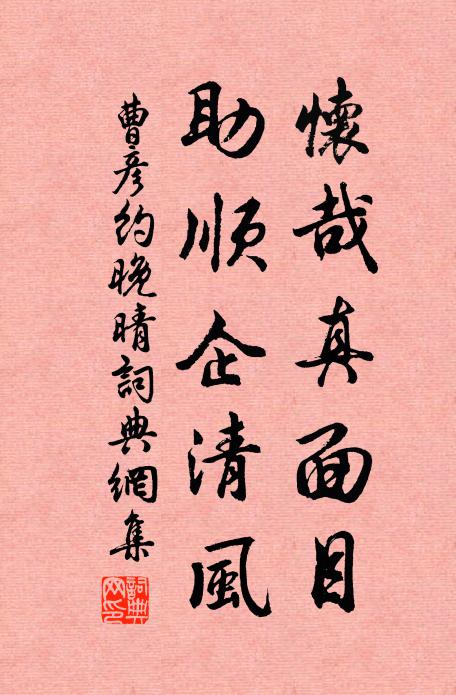 懷哉真面目
助順企清風
曹彦約晚晴詞典網集
詞典
网印